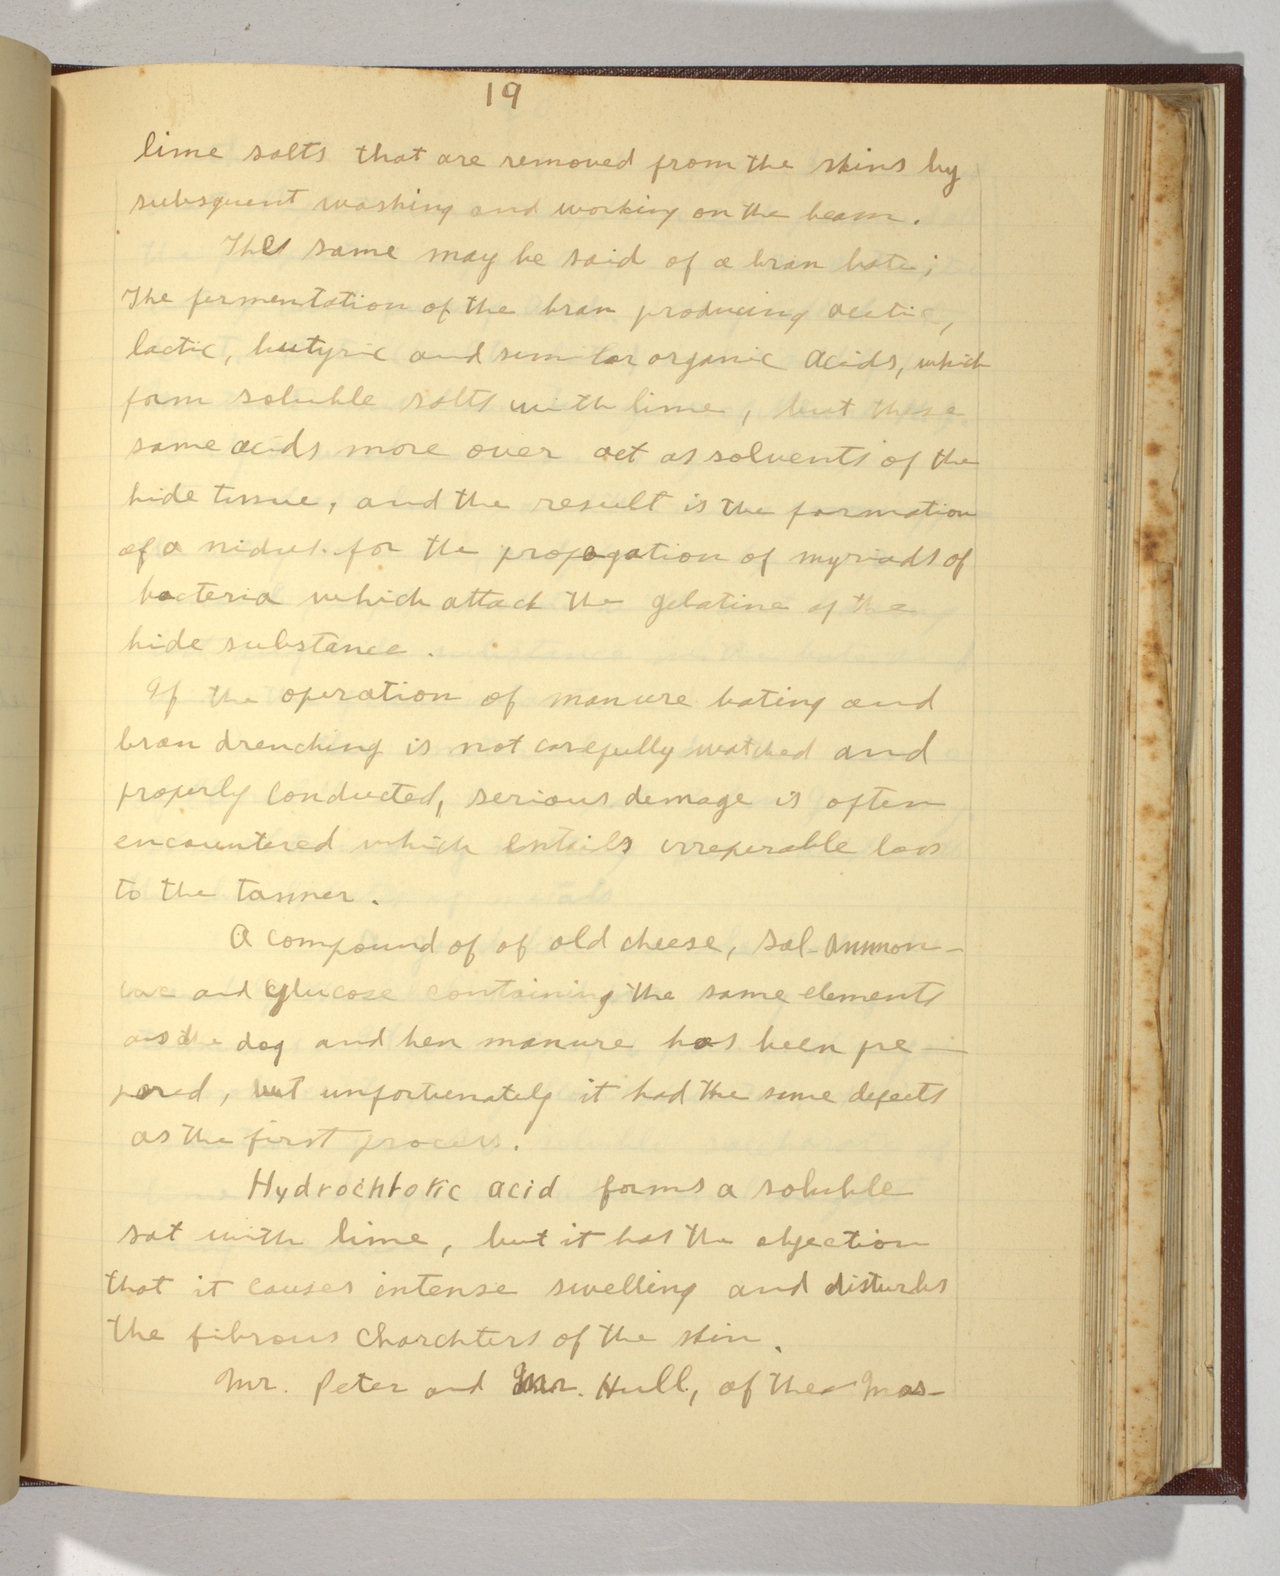 19
lime salts that are removed from the skins by
subsquent washing and working on the beam.
The same may be said of a bran bate;
The fermentation of the bran producing acetic,
lactic, butyric and similar organic acids, which
form soluble salts with lime, but these
same acids more over act as solvents of the
hide tissue, and the result is the formation
of a nidus for the propagation of myriads of
bacteria which attack the gelatine of the
hide substance.
If the operation of manure bating and
bran drenching is not carefully watched and
properly conducted, serious demage is often
encountered which entails irreperable loss
to the tanner.
A compound of of old cheese, sal-ammon-
iac and glucose containing the same elements
as the dog and hen manure has been pre-
pared, but unfortunately it had the same defects
as the first process.
Hydrochloric acid forms a soluble
sat with lime, but it has the objection
that it causes intense swelling and disturbs
the fibrous charchters of the skin.
Mr. Peter and Mr. Hull, of the Mas-